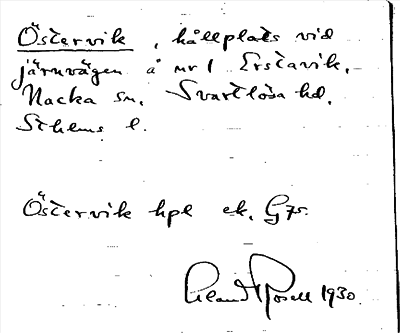 Östervik, hållplats vid
järnvägen å nr 1 Erstavik,
Nacka sn. Svartlösa hd.
Sthlms l.
Östervik hpl ek. G75.
Rosell 1930.